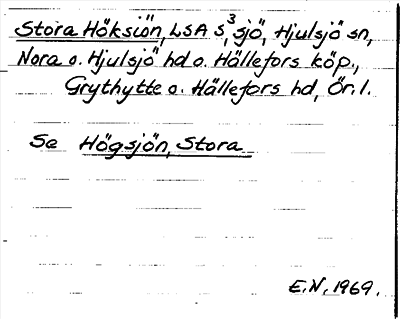 Stora Höksjön, LSA S,³ sjö, Hjulsjö sn,
Nora o. Hjulsjö hd o. Hällefors köp.,
Grythytte o. Hällefors hd, Ör. l.
Se Högsjön, Stora
E.N. 1969.